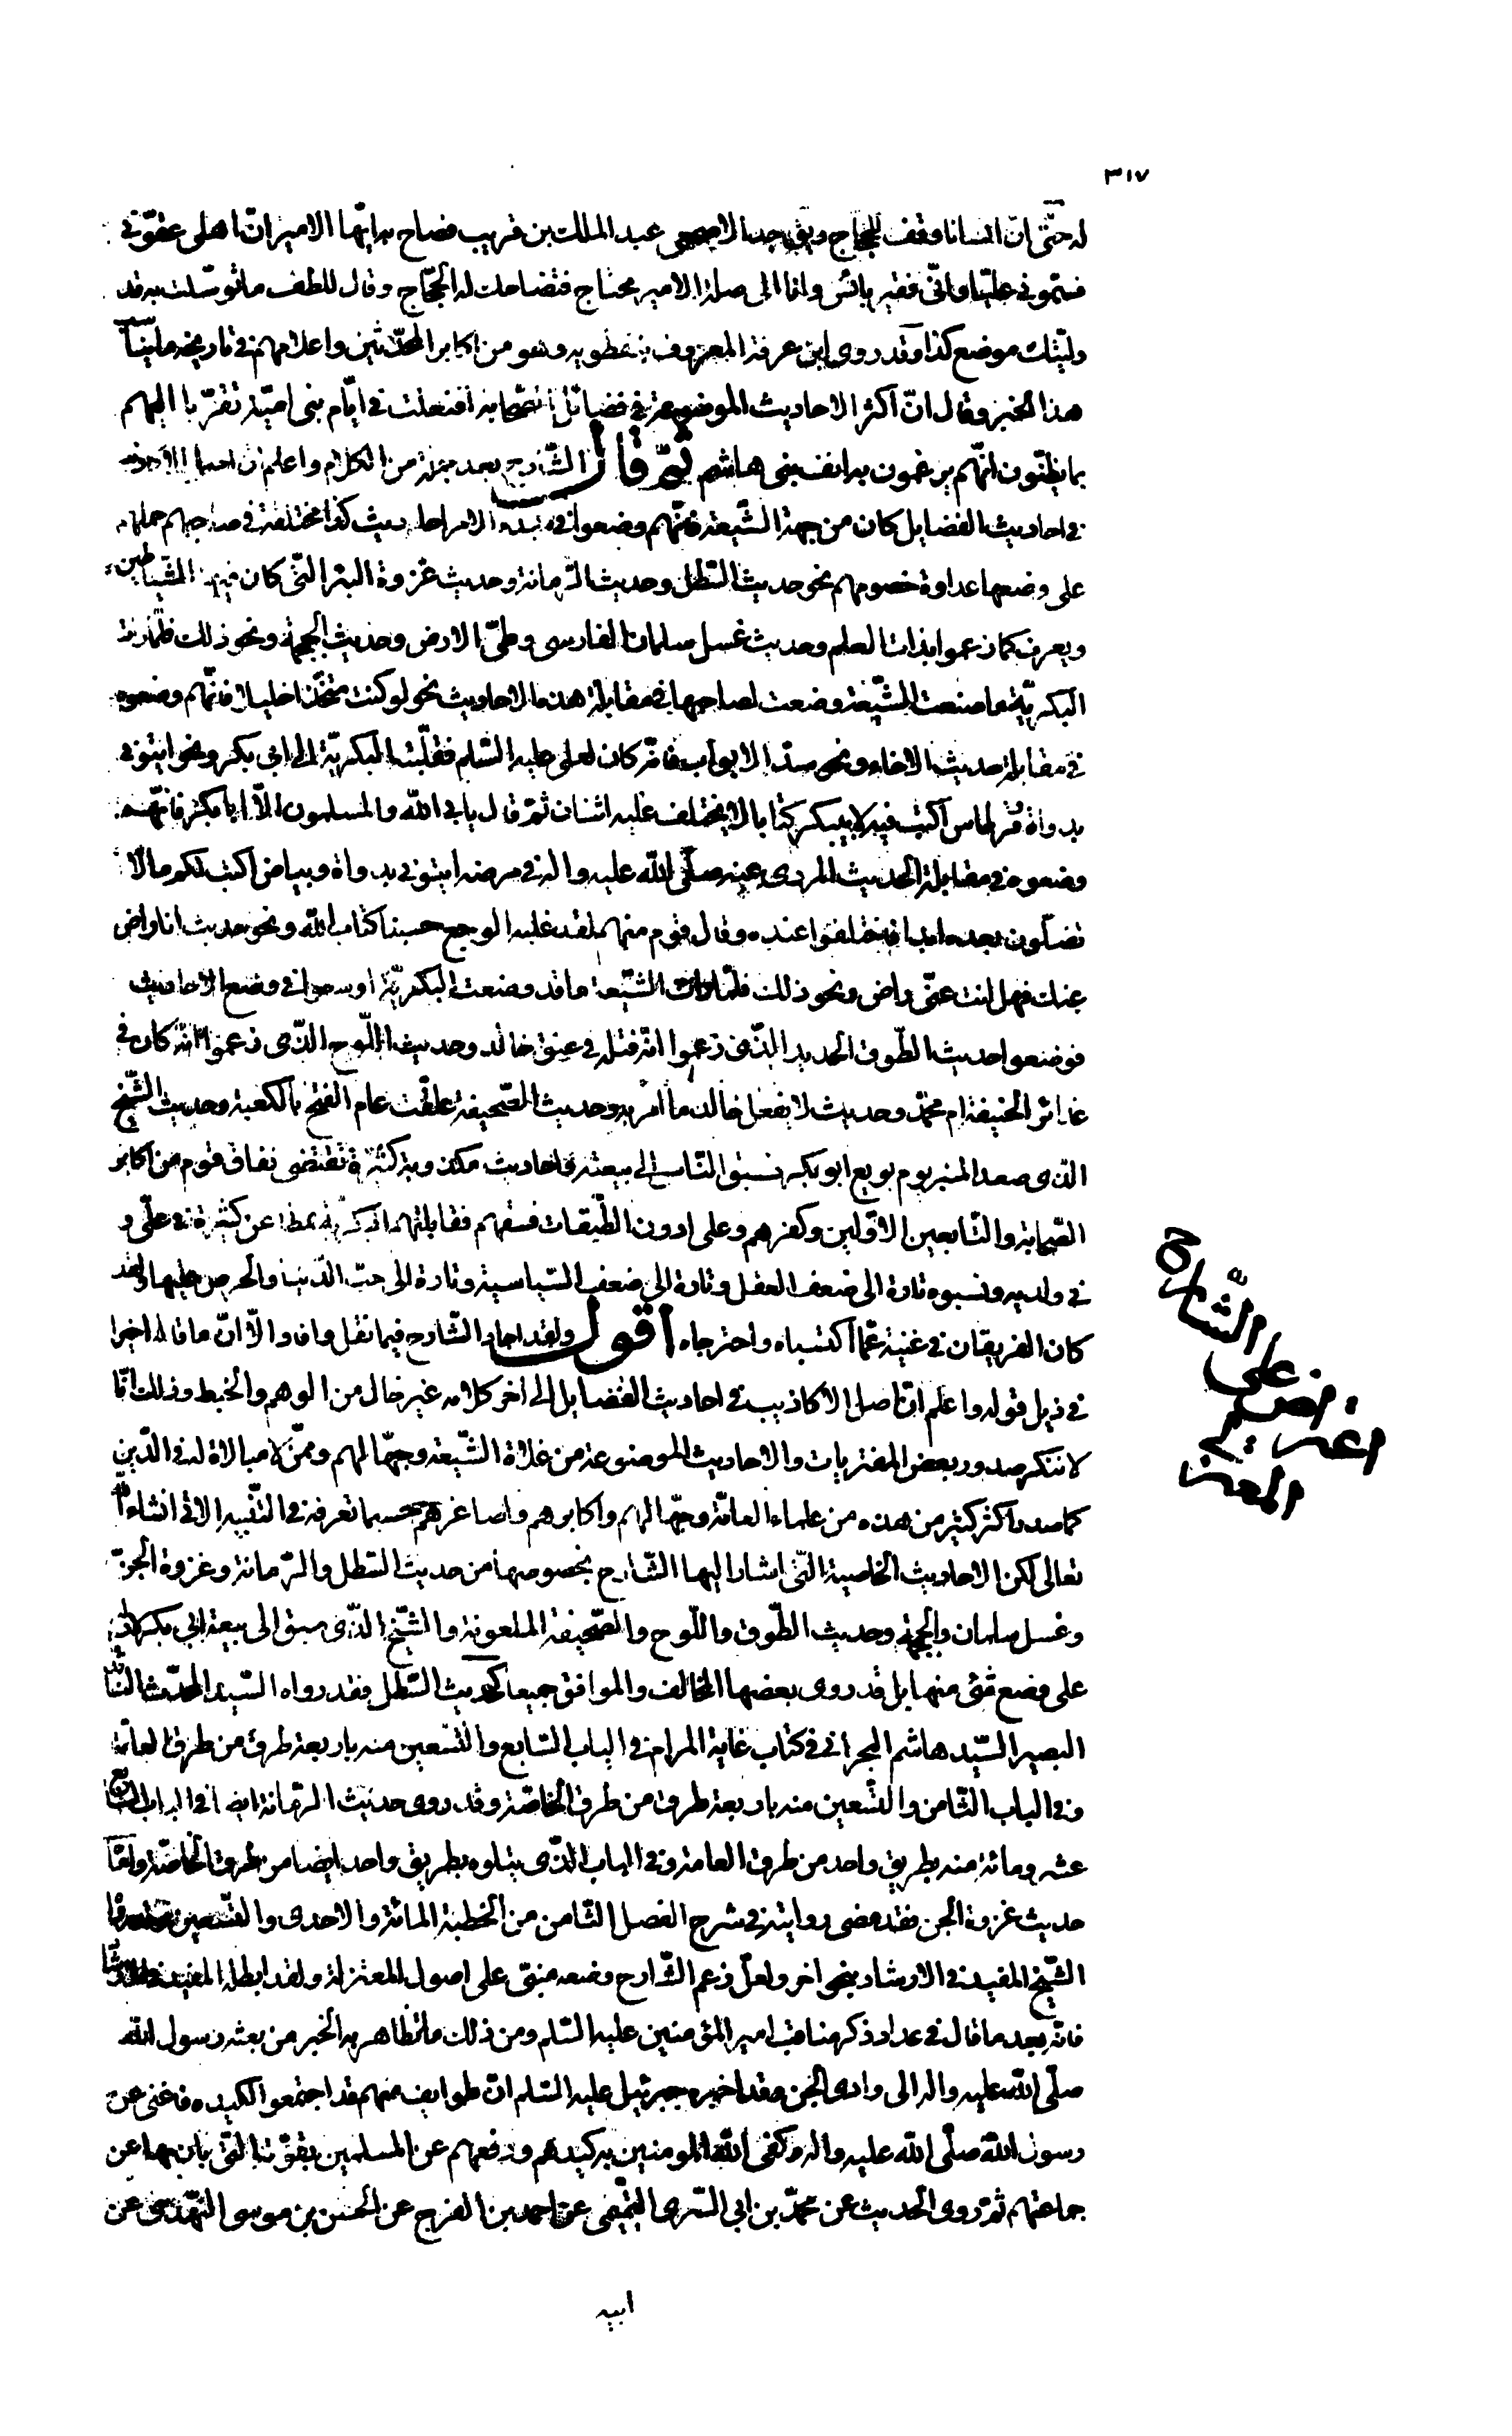 ٣١٧
له حتّى انّ انسانا وقف للحجاج ويق جد الاصمعى عبد الملك بن قريب فصاح به ايّها الامير انّ اهلى عقّونى
فسمّونى عليّا وانّى فقير بائس وانا الى صلة الامير محتاج فتضاحك له الحجّاج وقال للطف ما توسّلت به قد
وليّتك موضع كذا وقد روى ابن عرفة المعروف بنفطويه وهو من اكابر المحدّثين واعلامهم فى تاريخه ما يناسب
هذا الخبر وقال انّ اكثر الاحاديث الموضوعة فى فضائل الصّحابة افتعلت فى ايّام بنى اميّة تقرّبا اليهم
بما يظنّون انّهم يرغمون به انف بنى هاشم ثمّ قال الشّارح بعد جملة من الكلام واعلم ان اصل الاكاذيب
فى احاديث الفضايل كان من جهة الشّيعة فانّهم وضعوا فى مبدء الامر احاديث مختلفة فى صاحبهم حملهم
على وضعها عداوة خصومهم نحو حديث السّطل وحديث الرّمانة وحديث غزوة البئر الّتى كان فيها الشّياطين
ويعرف كما زعموا بذات العلم وحديث غسل سلمان الفارسى وطىّ الارض وحديث الجمجمة ونحو ذلك فلمّا رات
البكريّة ما صنعت الشّيعة وضعت لصاحبها فى مقابلة هذه الاحاديث نحو لو كنت متّخذا خليلا فانّهم وضعوه
فى مقابلة حديث الاخاء ونحو سدّ الابواب فانّه كان لعلى عليه السّلم فقلّبته البكريّة الى ابى بكر ونحو ايتونى
بدواة وقرطاس اكتب فيه لابى بكر كتابا لا يختلف عليه اثنان ثمّ قال يابى اللّه والمسلمون الاّ ابا بكر فانّهم
وضعوه فى مقابلة الحديث المروى عنه صلّى اللّه عليه واله فى مرضه ايتونى بدواة وبياض اكتب لكم ما لا
تضلّون بعده ابدا فاختلفوا عنده وقال قوم منهم لقد غلبه الوجع حسبنا كتاب اللّه ونحو حديث انا راض
عنك فهل انت عنّى راض ونحو ذلك فلمّا رات الشّيعة ما قد وضعت البكريّة اوسعوا فى وضع الاحاديث
فوضعوا حديث الطّوق الحديد الّذى زعموا انّه فتله فى عنق خالد وحديث اللّوح الّذى زعموا انّه كان فى
غدائر الحنيفة ام محمّد وحديث لا يفعل خالد ما امر به وحديث الصّحيفة علّقت عام الفتح بالكعبة وحديث الشّيخ
الّذى صعد المنبر يوم بويع ابو بكر فسبق النّاس الى بيعته واحاديث مكذوبة كثيرة تقتضى نفاق قوم من اكابر
الصّحابة والتّابعين الاوّلين وكفرهم وعلى ادون الطّبقات فسقهم فقابلتهم البكريّة بمطاعن كثيرة فى علّى و
فى ولديه ونسبوه تارة الى ضعف العقل وتارة الى ضعف السّياسية وتارة الى حبّ الدّنيا والحرص عليها ولقد
كان الفريقان فى غنية عمّا اكتسباه واجترحاه اقول ولقد اجاد الشّارح فيما نقل وافاد الاّ انّ ما قاله اخيرا
فى ذيل قوله واعلم انّ اصل الاكاذيب فى احاديث الفضايل الى اخر كلامه غير خال من الوهم والخبط وذلك انّا
لا ننكر صدور بعض المفتريات والاحاديث الموضوعة من غلاة الشّيعة وجهّالهم وممّن لا مبالاة له فى الدّين
كما صدر اكثر كثير من هذه من علماء العامّة وجهّالهم واكابرهم واصاغرهم حسبما تعرفه فى التّنبيه الاتى انشاء اللّه
تعالى لكن الاحاديث الخاصة الّتى اشار اليها الشّارح بخصوصها من حديث السّطل والرّمانة وغزوة الجنّ
وغسل سلمان والجمجمة وحديث الطّوق واللّوح والصّحيفة الملعونة والشّيخ الّذى سبق الى بيعة ابى بكر
على وضع شئ منها بل قد روى بعضها المخالف والموافق جميعا كحديث السّطل فقد رواه السّيد المحدّث النّاقد
البصير السّيد هاشم البحرانى فى كتاب غاية المرام فى الباب السّابع والتّسعين منه باربعة طرق من طرق العامّة
وفى الباب الثّامن والتّسعين منه باربعة طرق من طرق الخاصّة وقد روى حديث الرّمانة ايضا فى الباب الرابع
عشر ومائة منه بطريق واحد من طرق العامة وفى الباب الّذى يتلوه بطريق واحد ايضا من طرق الخاصّة وامّا
حديث غزوة الجن فقد مضى روايته فى شرح الفصل الثّامن من الخطبة المائة والاحدى والتّسعين
الشّيخ المفيد فى الارشاد بنحو اخر ولعلّ زعم الشّارح وضعه مبنىّ على اصول المعتزلة ولقد ابطله المفيد فى الارشاد
فانّه بعد ما قال فى عداد ذكر مناقب امير المؤمنين عليه السّلم ومن ذلك ما تظاهر به الخبر من بعثه رسول اللّه
صلّى اللّه عليه واله الى وادى الجن وقد اخبره جبرئيل عليه السّلم انّ طوايف منهم قد اجتمعوا لكيده فاغنى عن
رسول اللّه صلّى اللّه عليه واله وكفى اللّه المومنين به كيدهم ودفعهم عن المسلمين بقوّته الّتى بان بها عن
جماعتهم ثمّ روى الحديث عن محمّد بن ابى السّرى التّميمى عن احمد بن الفرج عن الحسن بن موسى النّهدى عن
ابيه
الشّارح
على
المعتزلى